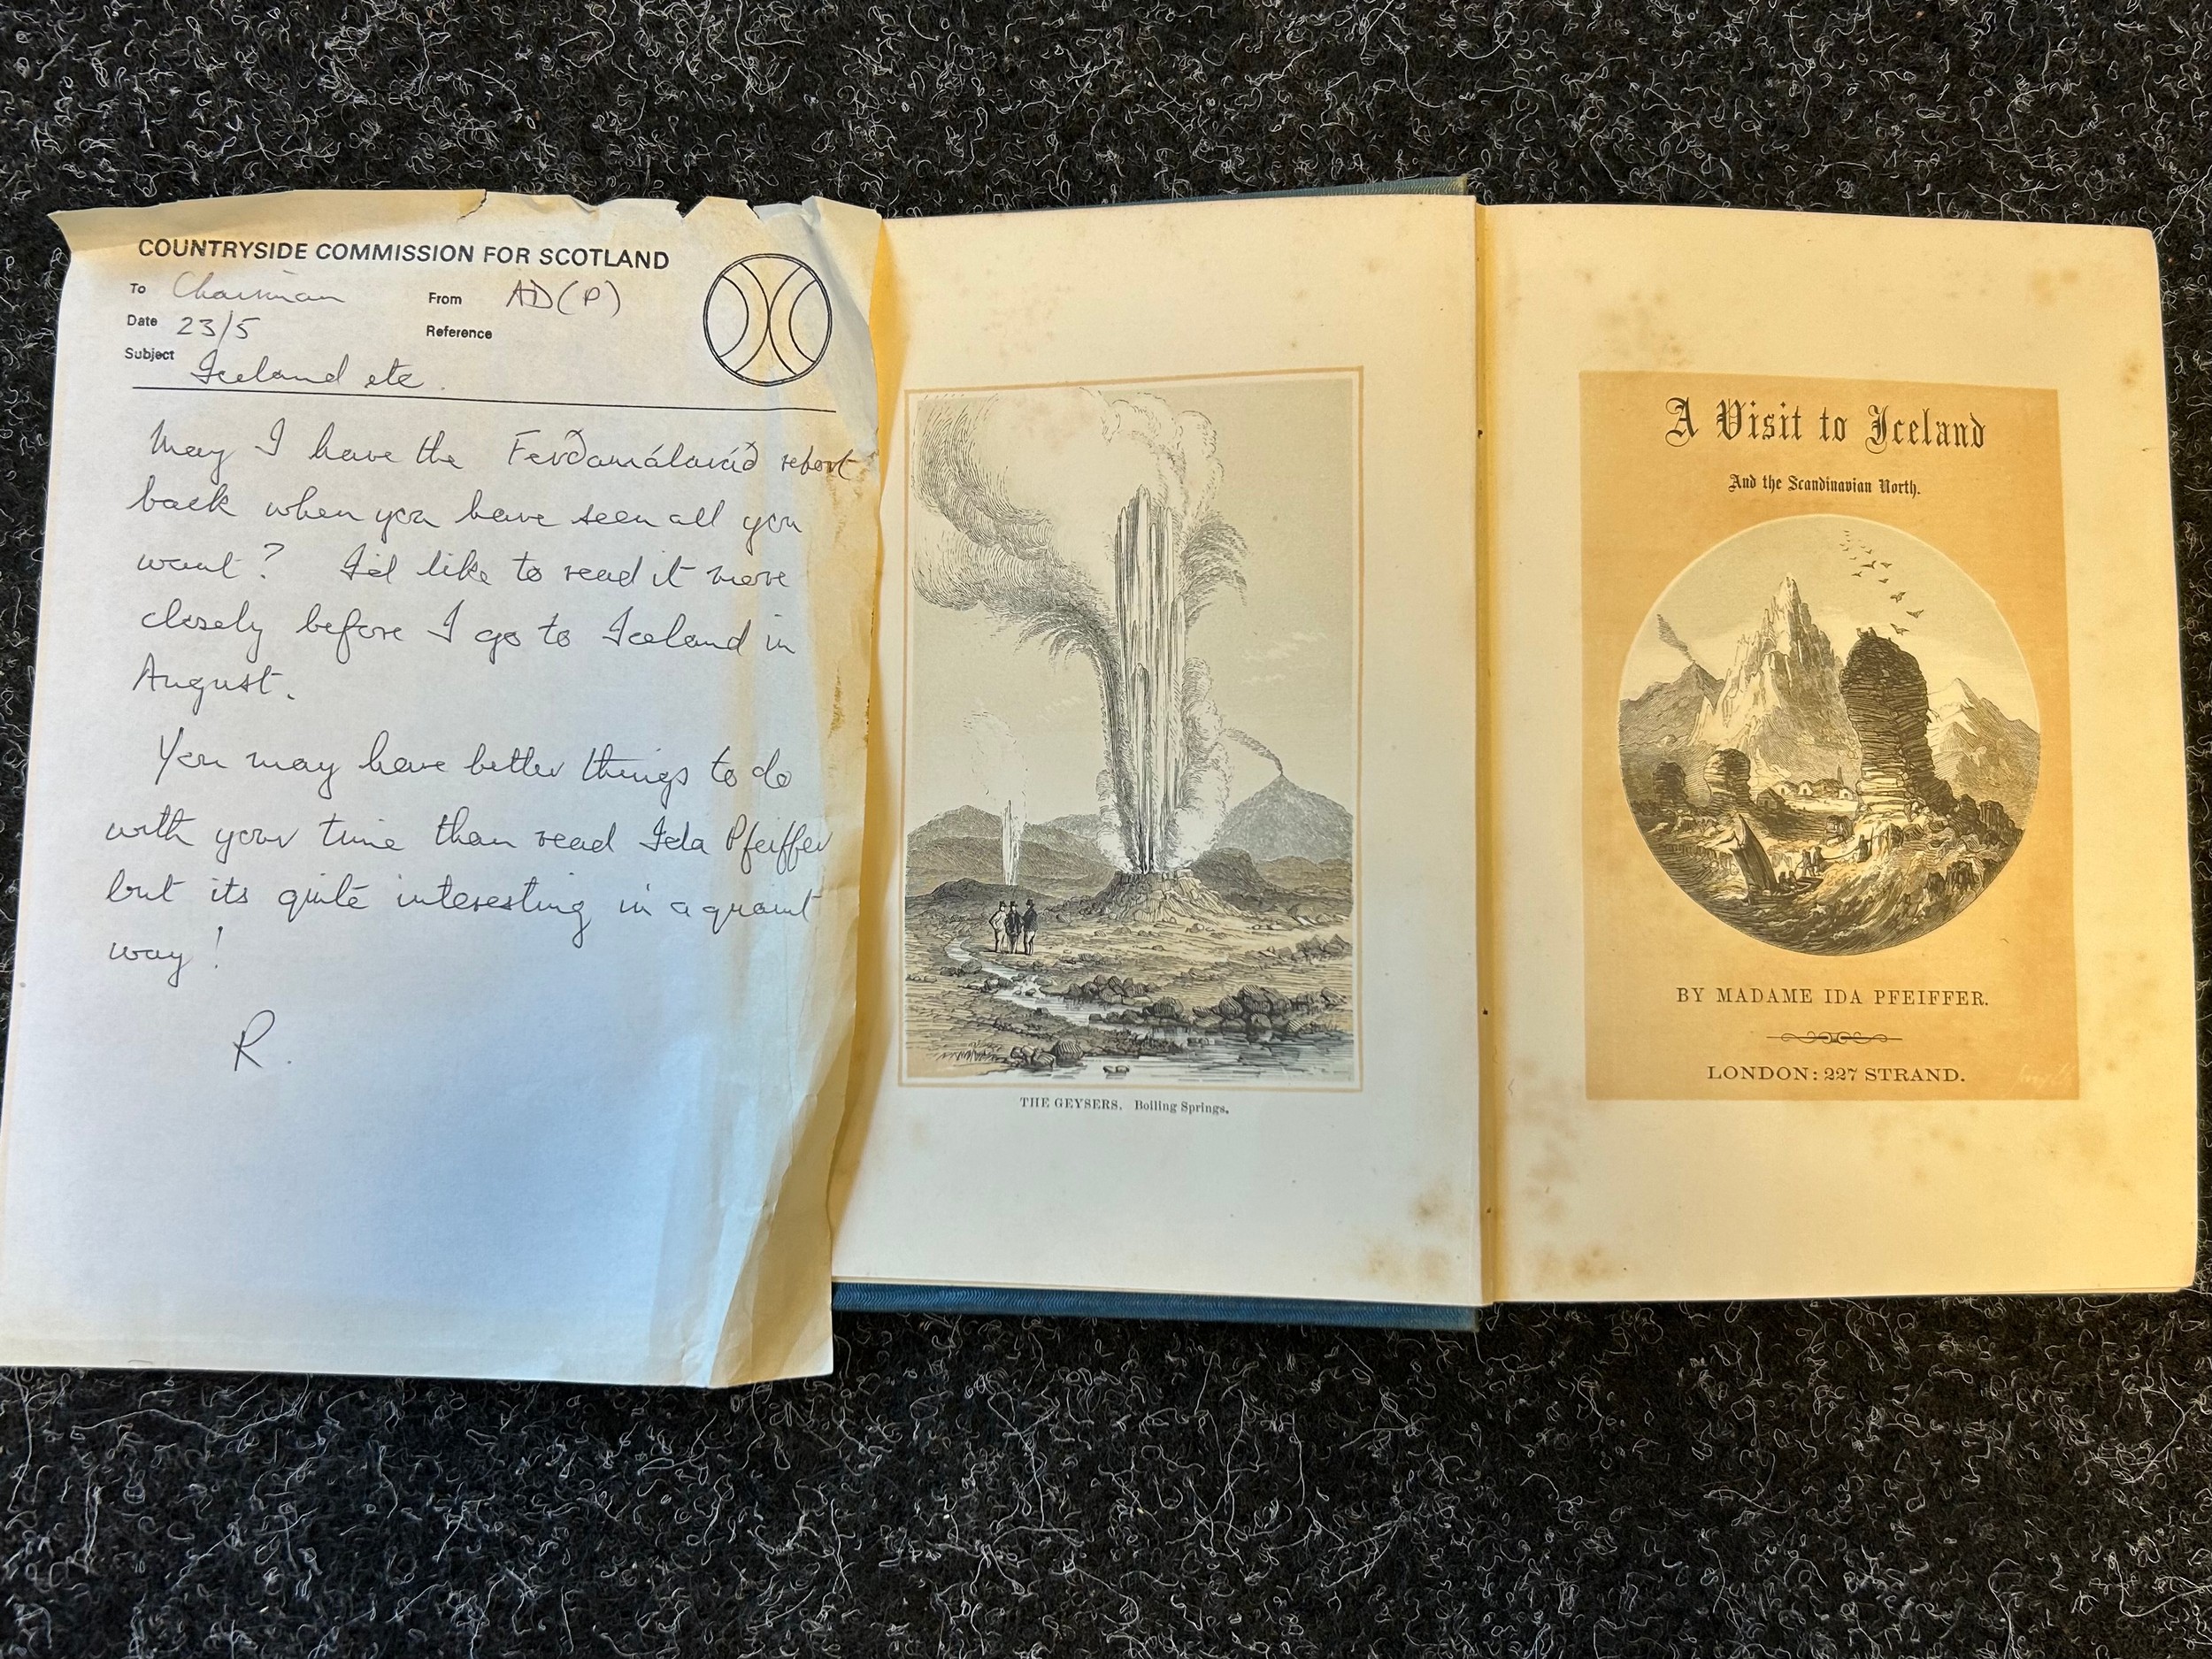 COUNTRYSIDE COMMISSION FOR SCOTLAND
To Chairman From AD(P)
Date 23/5 Reference
Subject Iceland etc.
May I have the Ferðamálaráð report
back when you have seen all you
want? I'd like to read it more
closely before I go to Iceland in
August.
You may have better things to do
with your time than read Ida Pfeiffer
but its quite interesting in a quaint
way!
R.
THE GEYSERS. Boiling Springs.
A Visit to Iceland
And the Scandinavian North.
BY MADAME IDA PFEIFFER.
LONDON: 227 STRAND.